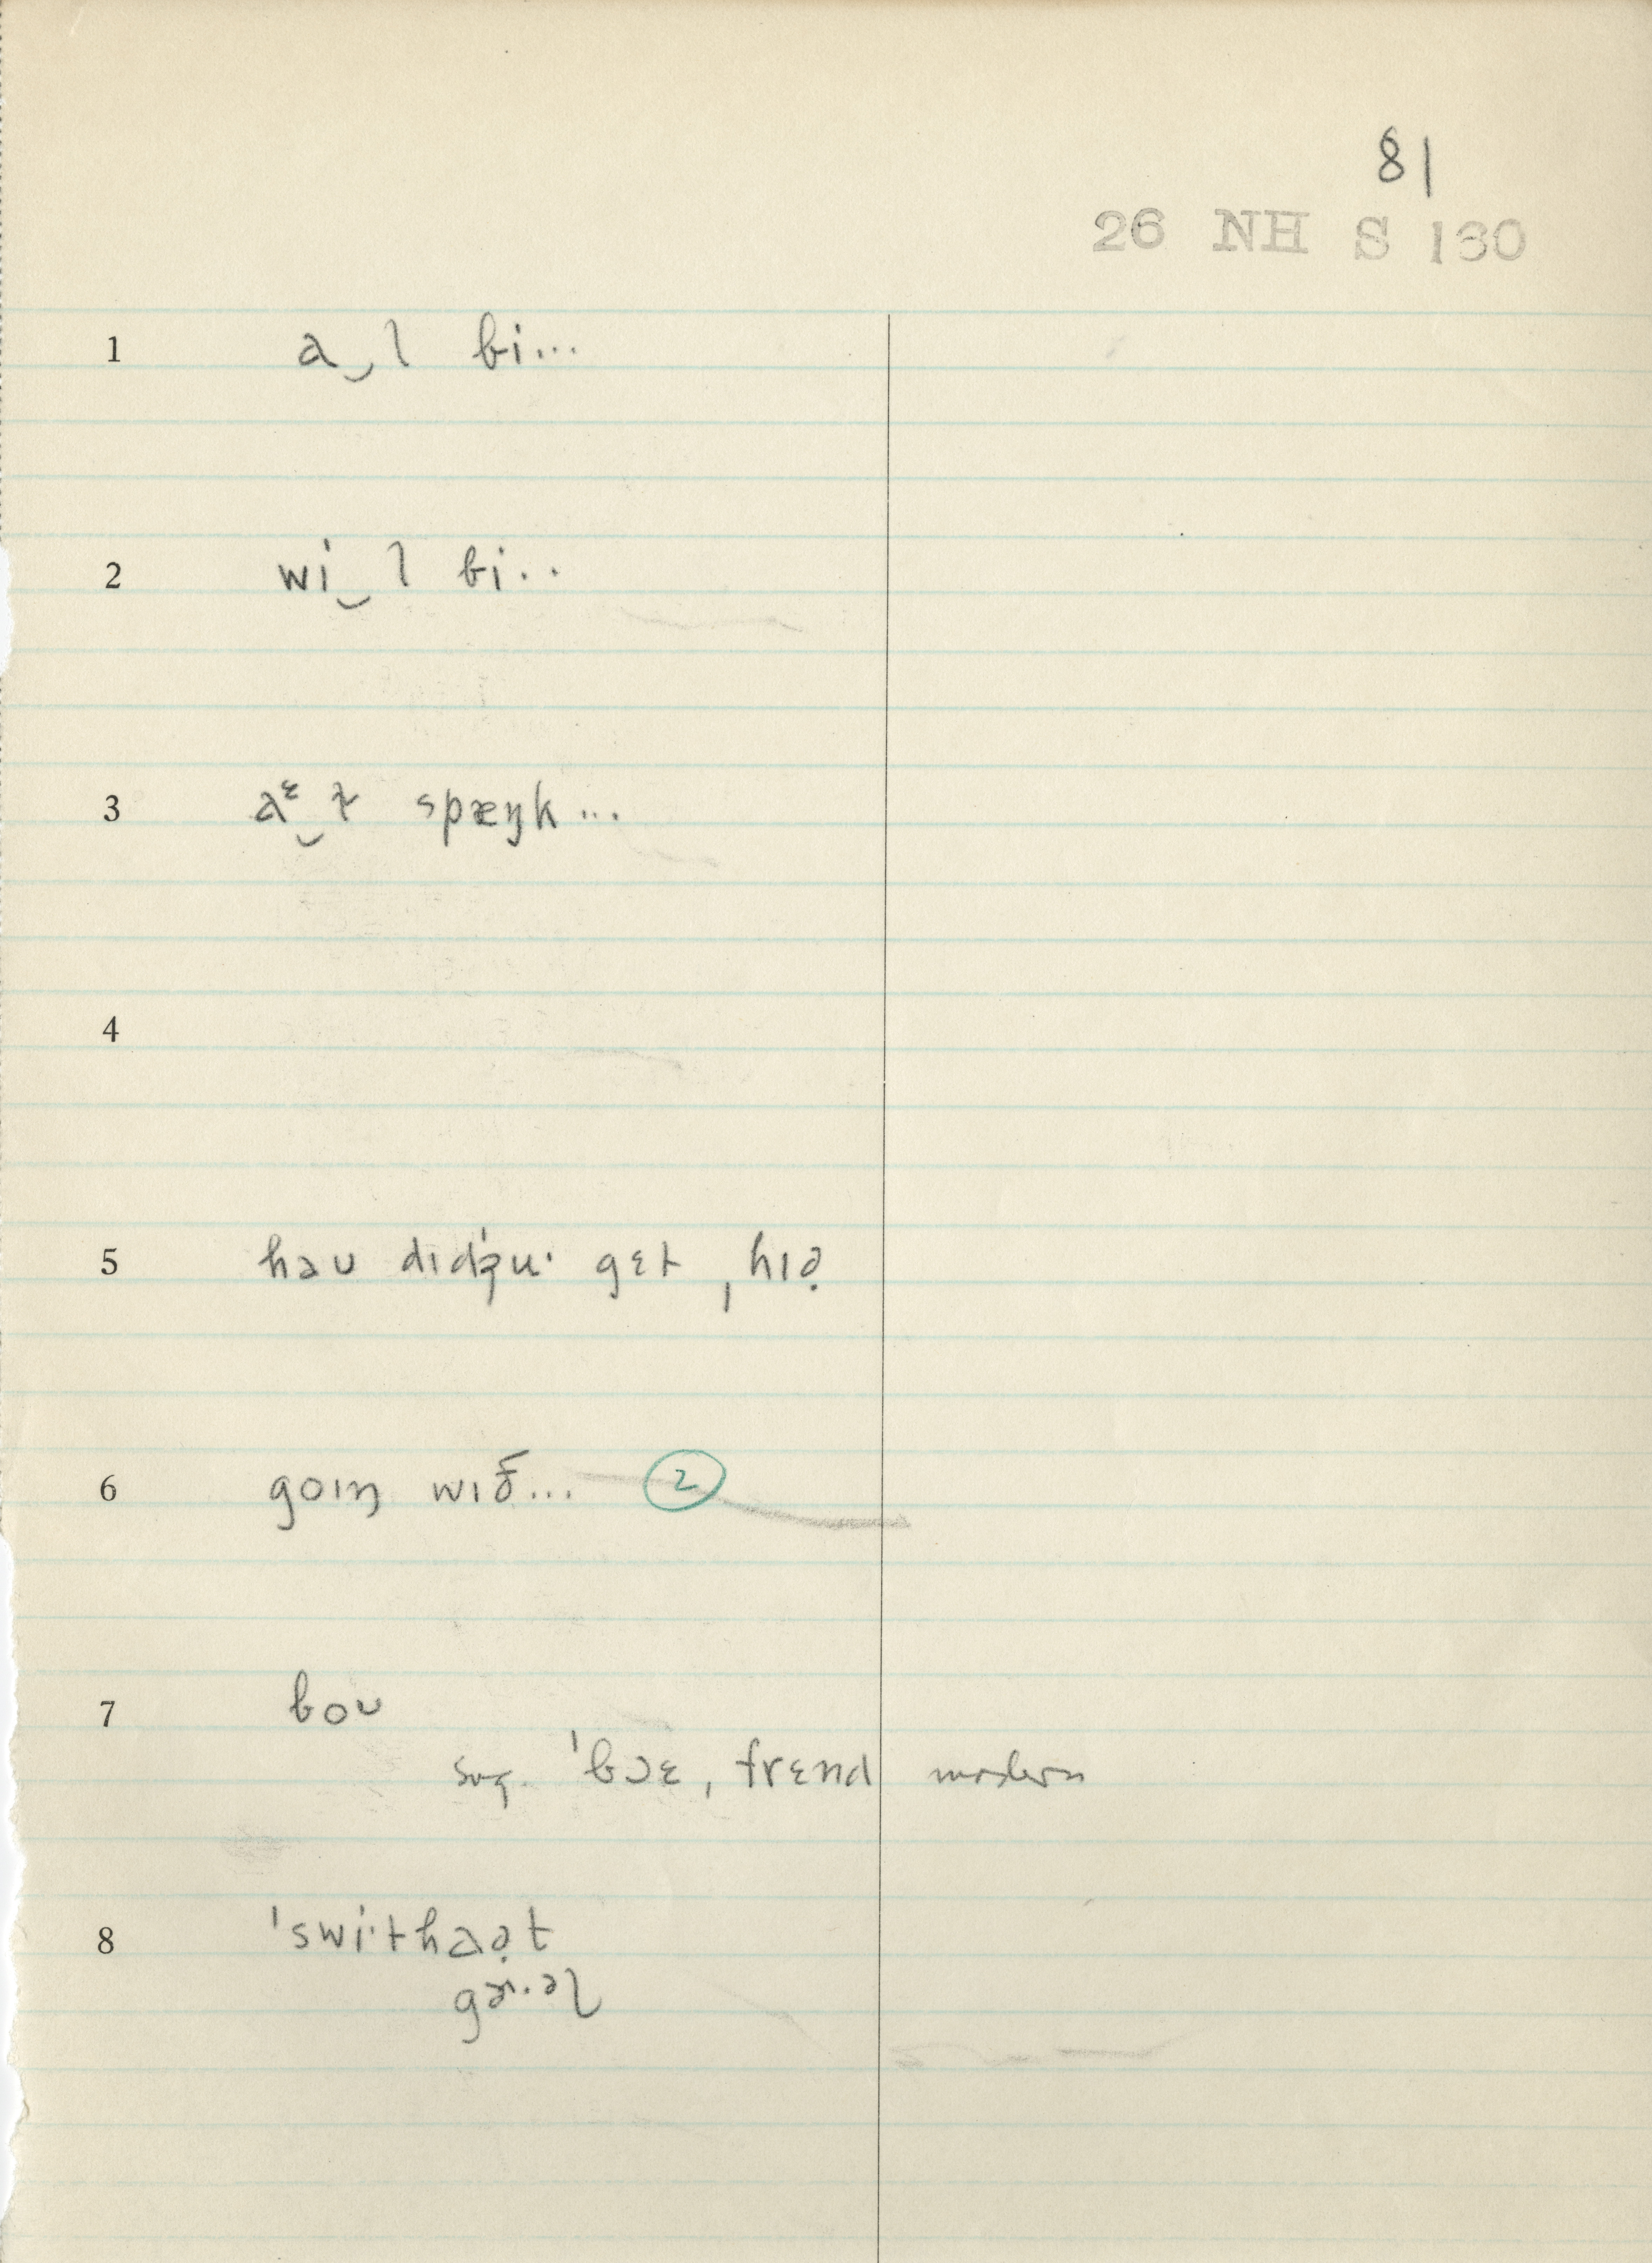 81
26 NH S 130
1 a‿l bi...
2 wi‿l bi..
3 aᵋ‿ɫ spæŋk...
4
5 haʊ dɪdʒu· gɛt ˌhɪə̣
6 goɪŋ wɪð... ②
7 boʊ
sug. ˈbɔɛ, frɛnd modern
8 ˈswi·thaə̣t
gɚ·əl